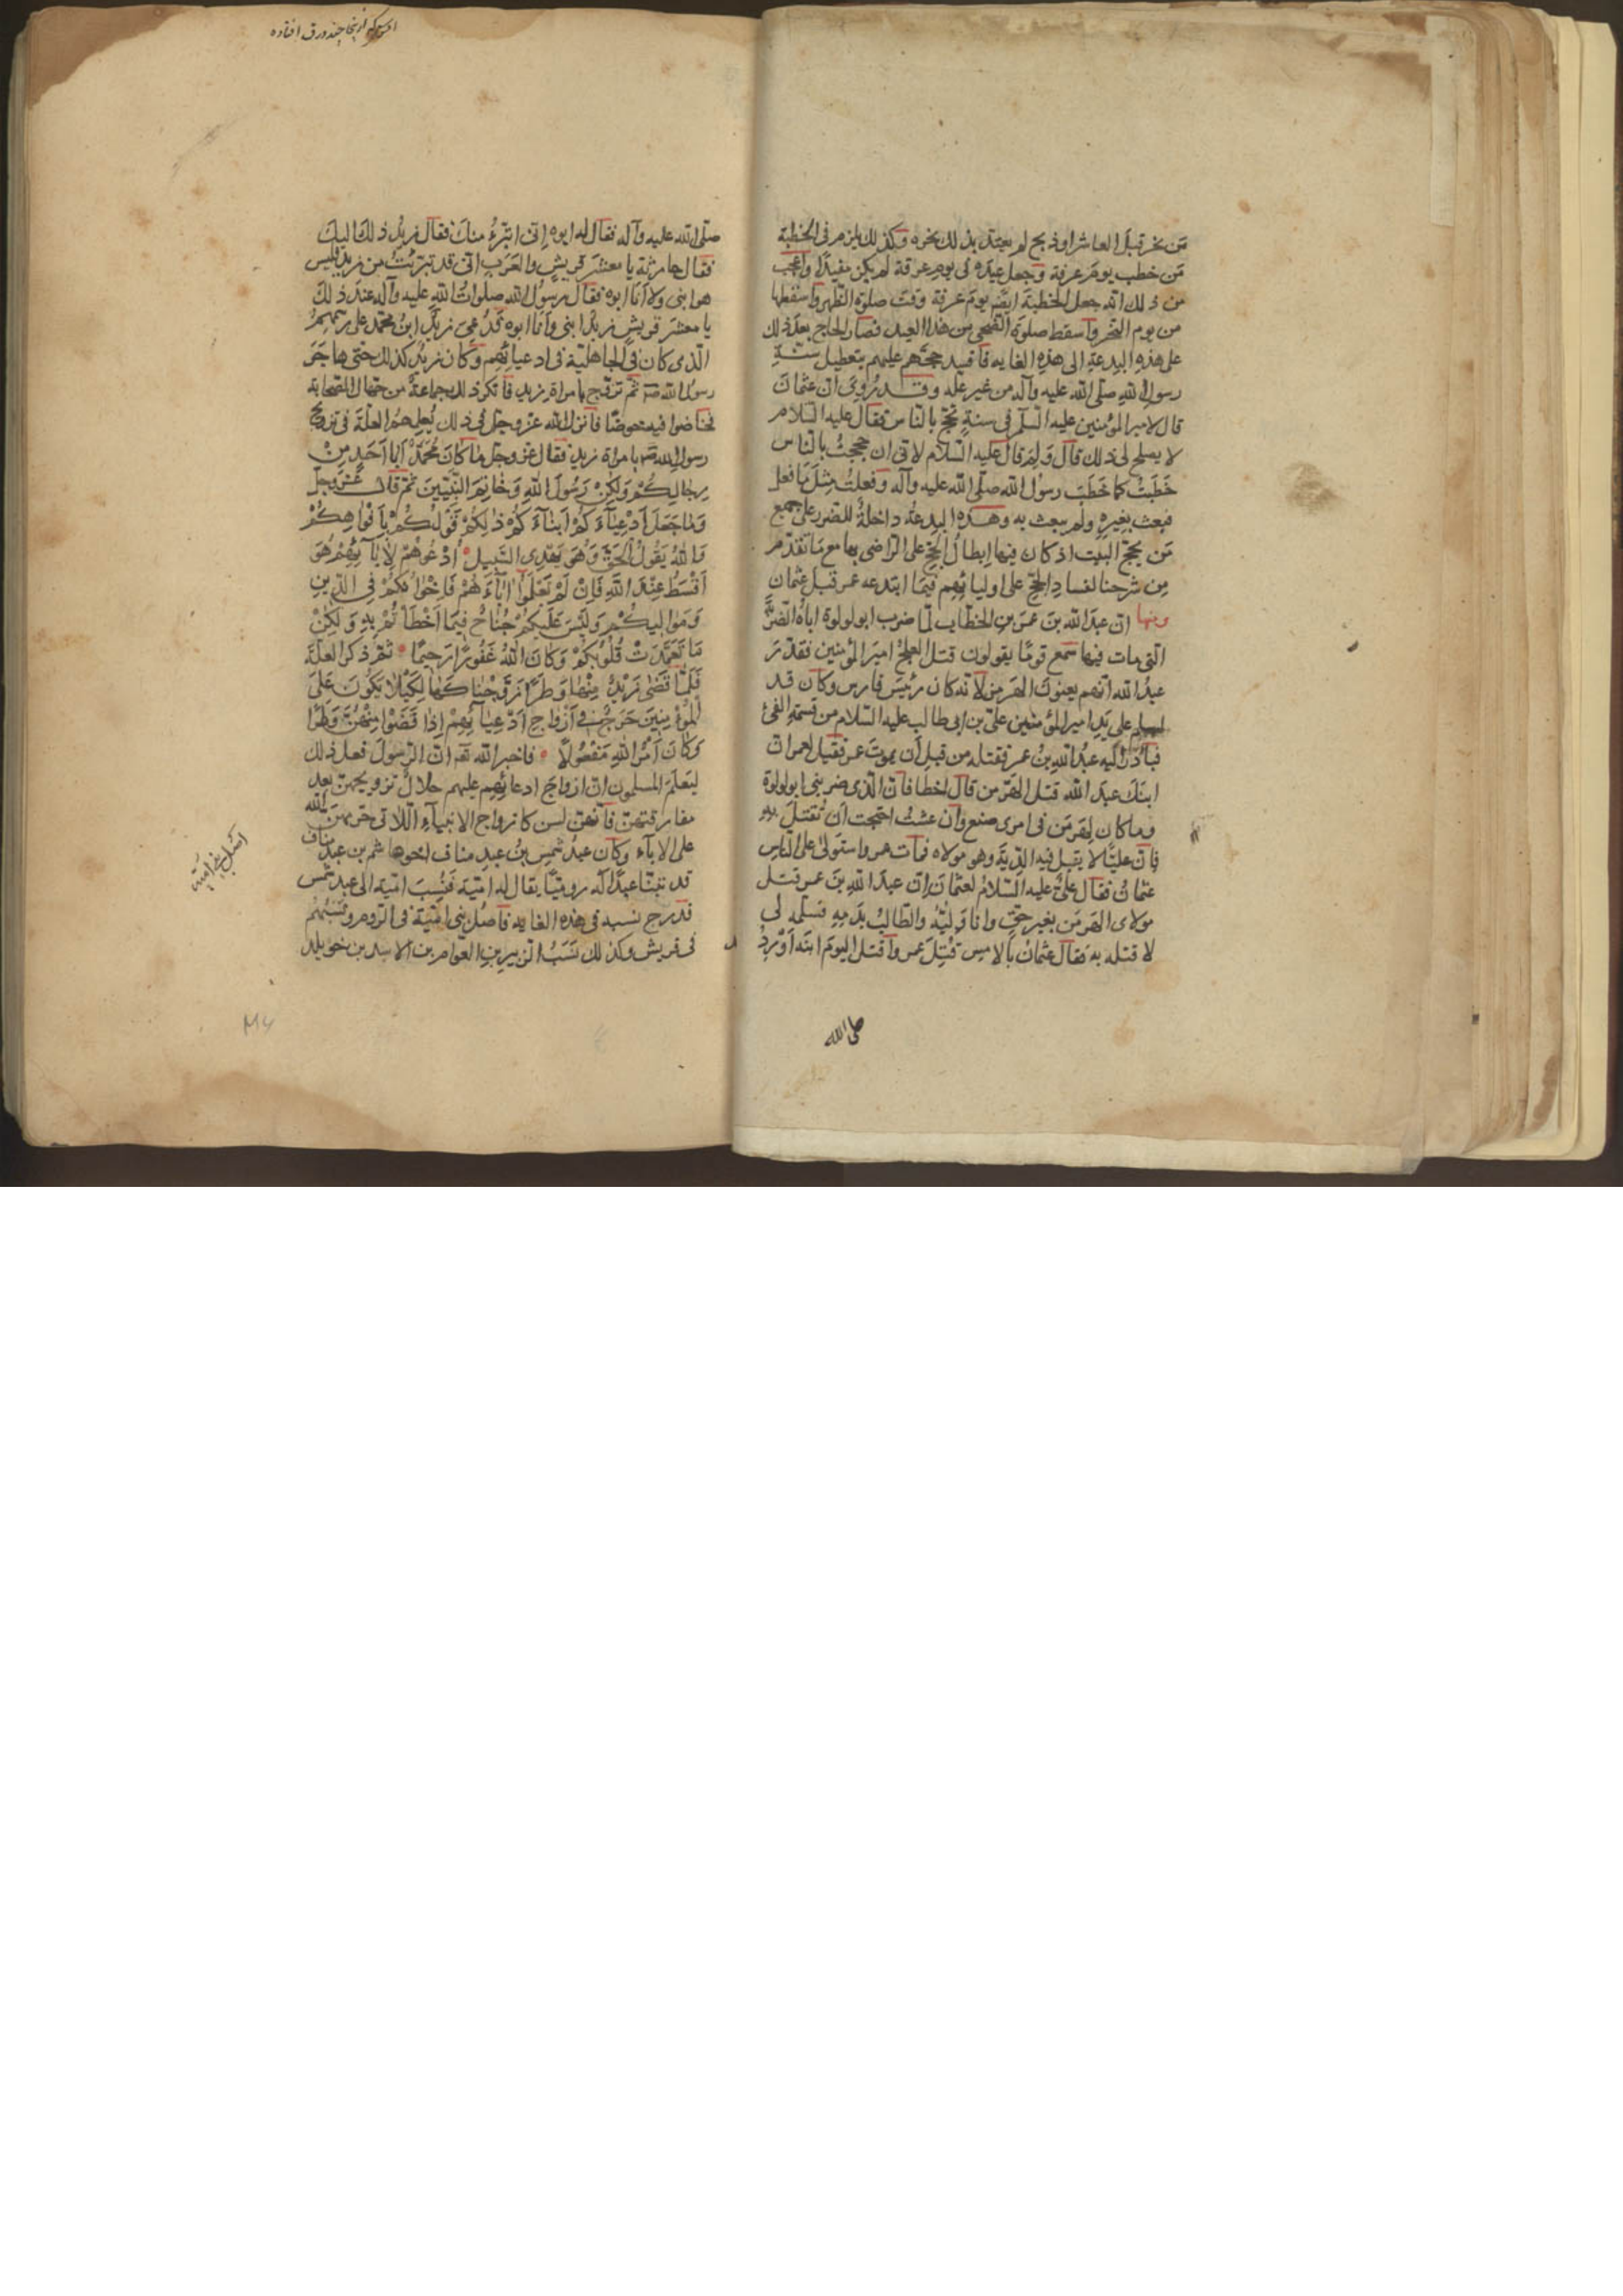 من نحر قبل العاشر او ذبح لم يعتد بذلك نحره وكذلك يلزم في الخطبة
من خطب يوم عرفة وجعل عيده في يوم عرفة لم يكن مفيدا واعجب
من ذلك انه جعل الخطبة ايضا يوم عرفة وقت صلوة الظهر واسقطها
من يوم النحر واسقط صلوة الضحى من هذا العيد فصار الحاج بعد ذلك
على هذه البدعة الى هذه الغاية فافسد حجهم عليهم بتعطيل سنة
رسول الله صلى الله عليه وآله من غير علة وقد روى ان عثمان
قال لامير المؤمنين عليه السلم في سنة تحج بالناس فقال عليه السلام
لا يصلح لى ذلك قال ولم قال عليه السلام لانى ان حججت بالناس
خطبت كما خطب رسول الله صلى الله عليه وآله وفعلت مثل ما فعل
فبعث بغيره ولم يبعث به وهذه البدعة داخلة للضرر على جميع
من يحج البيت اذ كان فيها ابطال الحج على الراضى بها مع ما تقدم
من شرحنا لفساد الحج على اوليائهم فيما ابتدعه عمر قبل عثمان
ومنها ان عبد الله بن عمر بن الخطاب لما ضرب ابو لولوة اباه الضربة
التى مات فيها سمع قوما يقولون قتل العلج امير المؤمنين فقدر
عبد الله انهم يعنون الهرمزان لانه كان رئيس فارس وكان قد
اسلم على يد امير المؤمنين على بن ابى طالب عليه السلام من قسمة الفئ
فبادر اليه عبد الله بن عمر فقتله من قبل ان يموت عمر فقيل لعمر ان
ابنك عبد الله قتل الهرمزان قال اخطا فان الذى ضربنى ابو لولوة
وما كان لهرمزان فى امرى صنع وان عشت احتجت ان تقتل به
فان عليا لا يقبل فيه الدية وهو مولاه فمات عمر واستولى على الناس
عثمان فقال على عليه السلام لعثمان ان عبد الله بن عمر قتل
مولاى الهرمزان بغير حق وانا وليه والطالب بدمه فسلمه لى
لا قتله به فقال عثمان بالامس قتل عمر واقتل اليوم ابنه اورد
صلى الله
صلى الله عليه وآله فقال له ابوه انى اتبرء منك فقال زيد ذلك اليك
فقال حارثة يا معشر قريش والعرب انى قد تبرئت من زيد فليس
هو ابنى ولا انا ابوه فقال رسول الله صلوات الله عليه وآله عند ذلك
يا معشر قريش زيد ابنى وانا ابوه فدعى زيد ابن محمد على رسمهم
الذى كان فى الجاهلية فى ادعيائهم وكان زيد كذلك حتى هاجر
رسول الله ثم تزوج بامراة زيد فانكر ذلك جماعة من جهال الصحابة
فخاضوا فيه خوضا فانزل الله عز وجل فى ذلك يعلمهم العلة فى تزويج
رسول الله بامراة زيد فقال عز وجل ما كان محمد ابا احد من
رجالكم ولكن رسول الله وخاتم النبيين ثم قال عز وجل
وما جعل ادعياءكم ابناءكم ذلكم قولكم بافواهكم
والله يقول الحق وهو يهدى السبيل ادعوهم لابآئهم هو
اقسط عند الله فان لم تعلموا اباءهم فاخوانكم فى الدين
ومواليكم وليس عليكم جناح فيما اخطاتم به ولكن
ما تعمدت قلوبكم وكان الله غفورا رحيما ثم ذكر العلة
فلما قضى زيد منها وطرا زوجناكها لكيلا يكون على
المؤمنين حرج فى ازواج ادعيائهم اذا قضوا منهن وطرا
وكان امر الله مفعولا فاخبر الله ان الرسول فعل ذلك
ليعلم المسلمون ان ازواج ادعائهم عليهم حلال تزويجهن بعد
مفارقتهن فانهن لسن كازواج الابنياء اللاتى حرمهن الله
على الاباء وكان عبد شمس بن عبد مناف اخوهاشم بن عبد مناف
قد تبنا عبدا له روميا يقال له امية فنسب امية الى عبد شمس
فدرج نسبه فى هذه الغاية فاصل بنى امية فى الروم ونسبهم
فى قريش وكذلك نسب الزبير بن العوام بن الاسد بن خويلد
اصل بنى امية